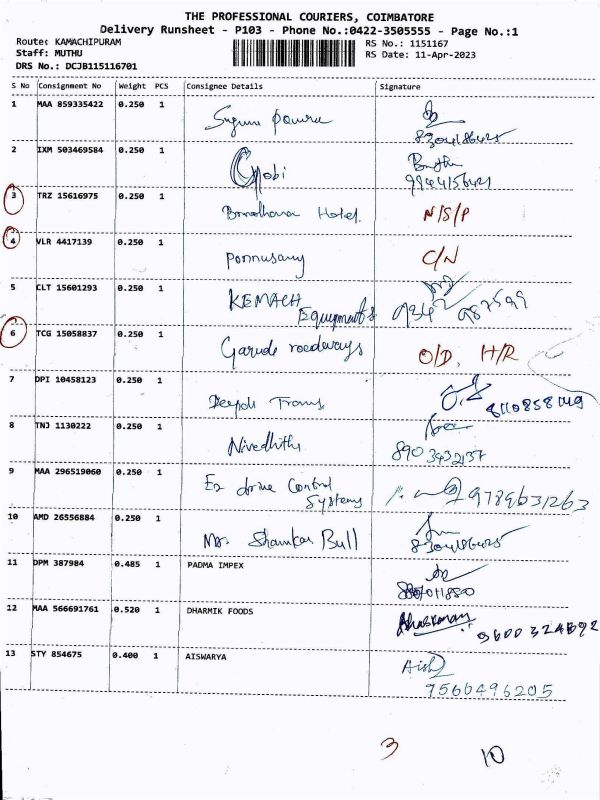 THE PROFESSIONAL COURIERS, COIMBATORE
Delivery Runsheet - P103 - Phone No.:0422-3505555 - Page No.:1
Route: KAMACHIPURAM
Staff: MUTHU
DRS No.: DCJB115116701
RS No.: 1151167
RS Date: 11-Apr-2023
S No Consignment No Weight PCS Consignee Details Signature
1 MAA 859335422 0.250 1
8304186425
2 IXM 503469584 0.250 1 Gobi
9944156421
3 TRZ 15616975 0.250 1 Hotel. N/S/P
4 VLR 4417139 0.250 1 Ponnusamy C/N
5 CLT 15601293 0.250 1 KEMACH
Equipments
6 TCG 15058837 0.250 1 Garuda roadways O/D, H/R
7 DPI 10458123 0.250 1 Deepak Trans,
8 TNJ 1130222 0.250 1 Nivedhitha
8903432137
9 MAA 296519060 0.250 1 Ez drive Control
Systems 9789631263
10 AMD 26556884 0.250 1 Mr. Shankar Bull
8304186425
11 DPM 387984 0.485 1 PADMA IMPEX
12 MAA 566691761 0.520 1 DHARMIK FOODS Bhaskaran
13 STY 854675 0.400 1 AISWARYA Aish
7566496205
3 10